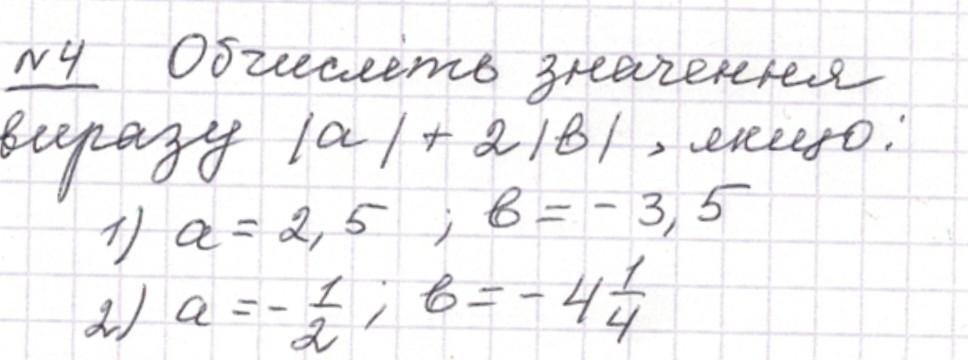 №4 Обчисліть значення
виразу |a| + 2|b|, якщо:
1) a = 2,5 ; b = - 3,5
2) a = - 1/2 ; b = - 4 1/4